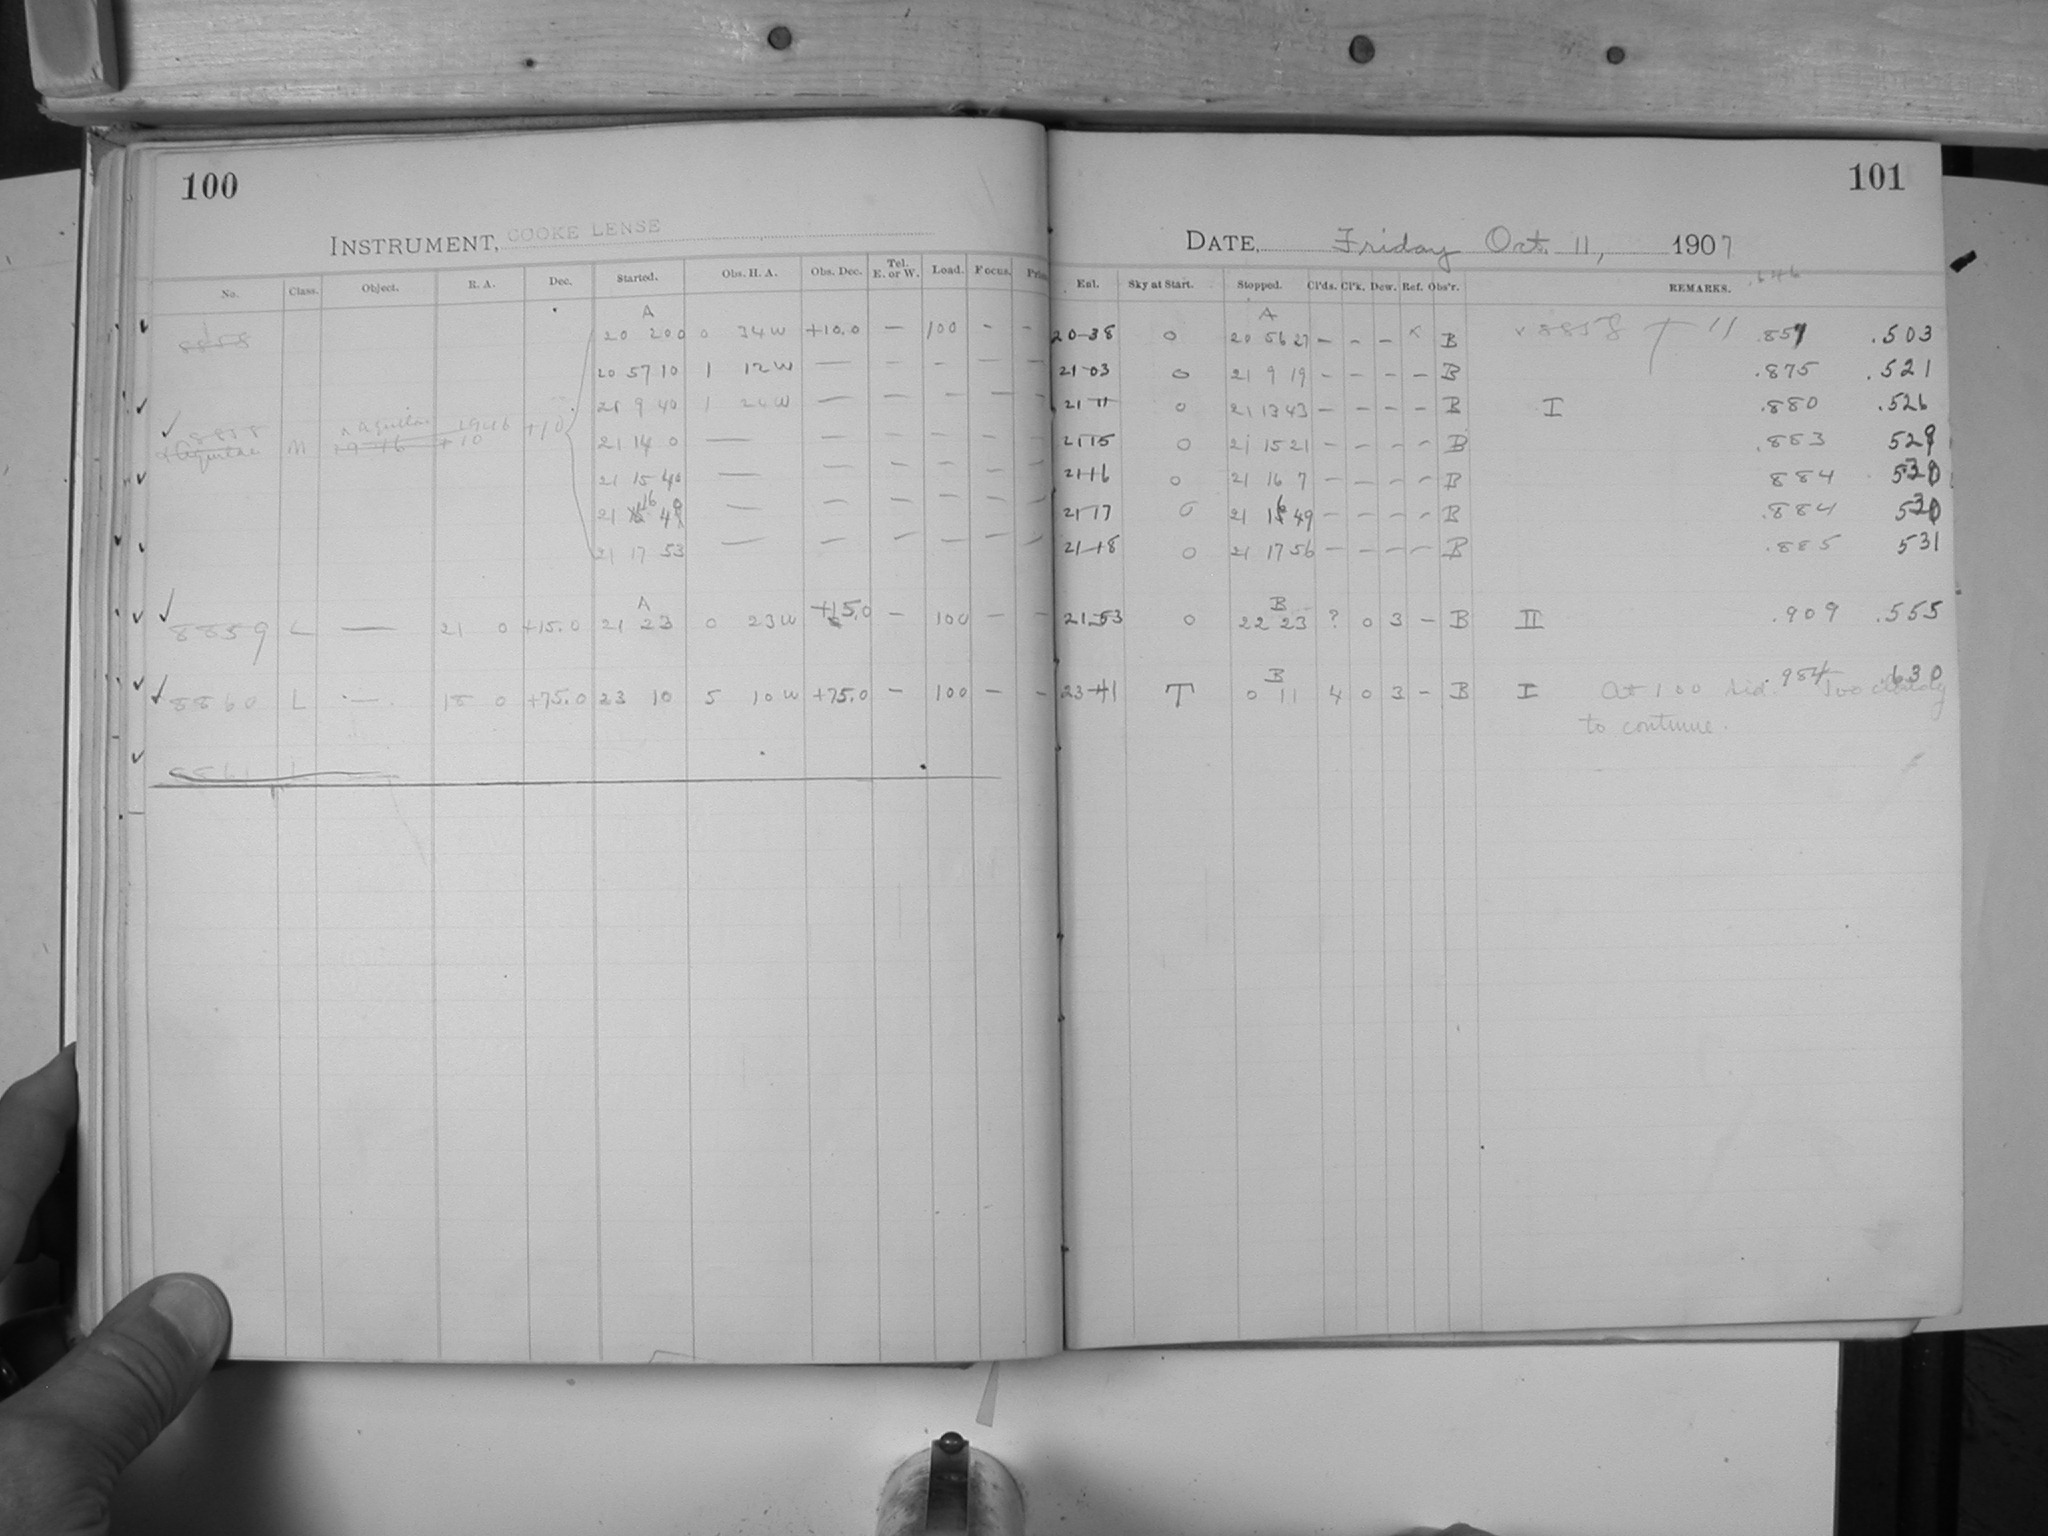 100
INSTRUMENT, COOKE LENSE
No. Class. Object. R. A. Dec. Started. Obs. H. A. Obs. Dec. Tel. E. or W. Load. Focus.
8858 A 20 20 0 0 34 W +10.0 — 100 - -
20 57 10 1 12 W — — - — —
21 9 40 1 W — — — — —
8858 Aquilae M Aquilae 19 46 +10 +10 21 14 0 — — — — — —
21 15 40 — — — — — —
21 16 — — — — — —
21 17 53 — — — — — —
8859 L — 21 0 +15.0 A 21 23 0 23 W +15.0 — 100 — —
8860 L — 18 0 +75.0 23 10 5 10 W +75.0 - 100 — -
101
DATE, Friday Oct. 11, 1907
.646
Enl. Sky at Start. Stopped. Cl'ds. Cl'k. Dew. Ref. Obs'r. REMARKS.
20-38 0 A 20 56 27 — - — × B × 8858 .503
21-03 0 21 9 19 - - - — B .875 .521
21-11 0 21 13 43 — - - - B I .880 .526
21-15 0 21 15 21 - - - - B .883 529
21-16 0 21 16 7 — — - - B 884 530
21-17 0 21 16 49 - - - - B .884 530
21-18 0 21 17 56 — — - — B .885 531
21-53 0 B 22 23 ? 0 3 — B II .909 .555
23-41 T B 0 11 4 0 3 — B I At 1 00 sid. Too cloudy .984 .630
to continue.